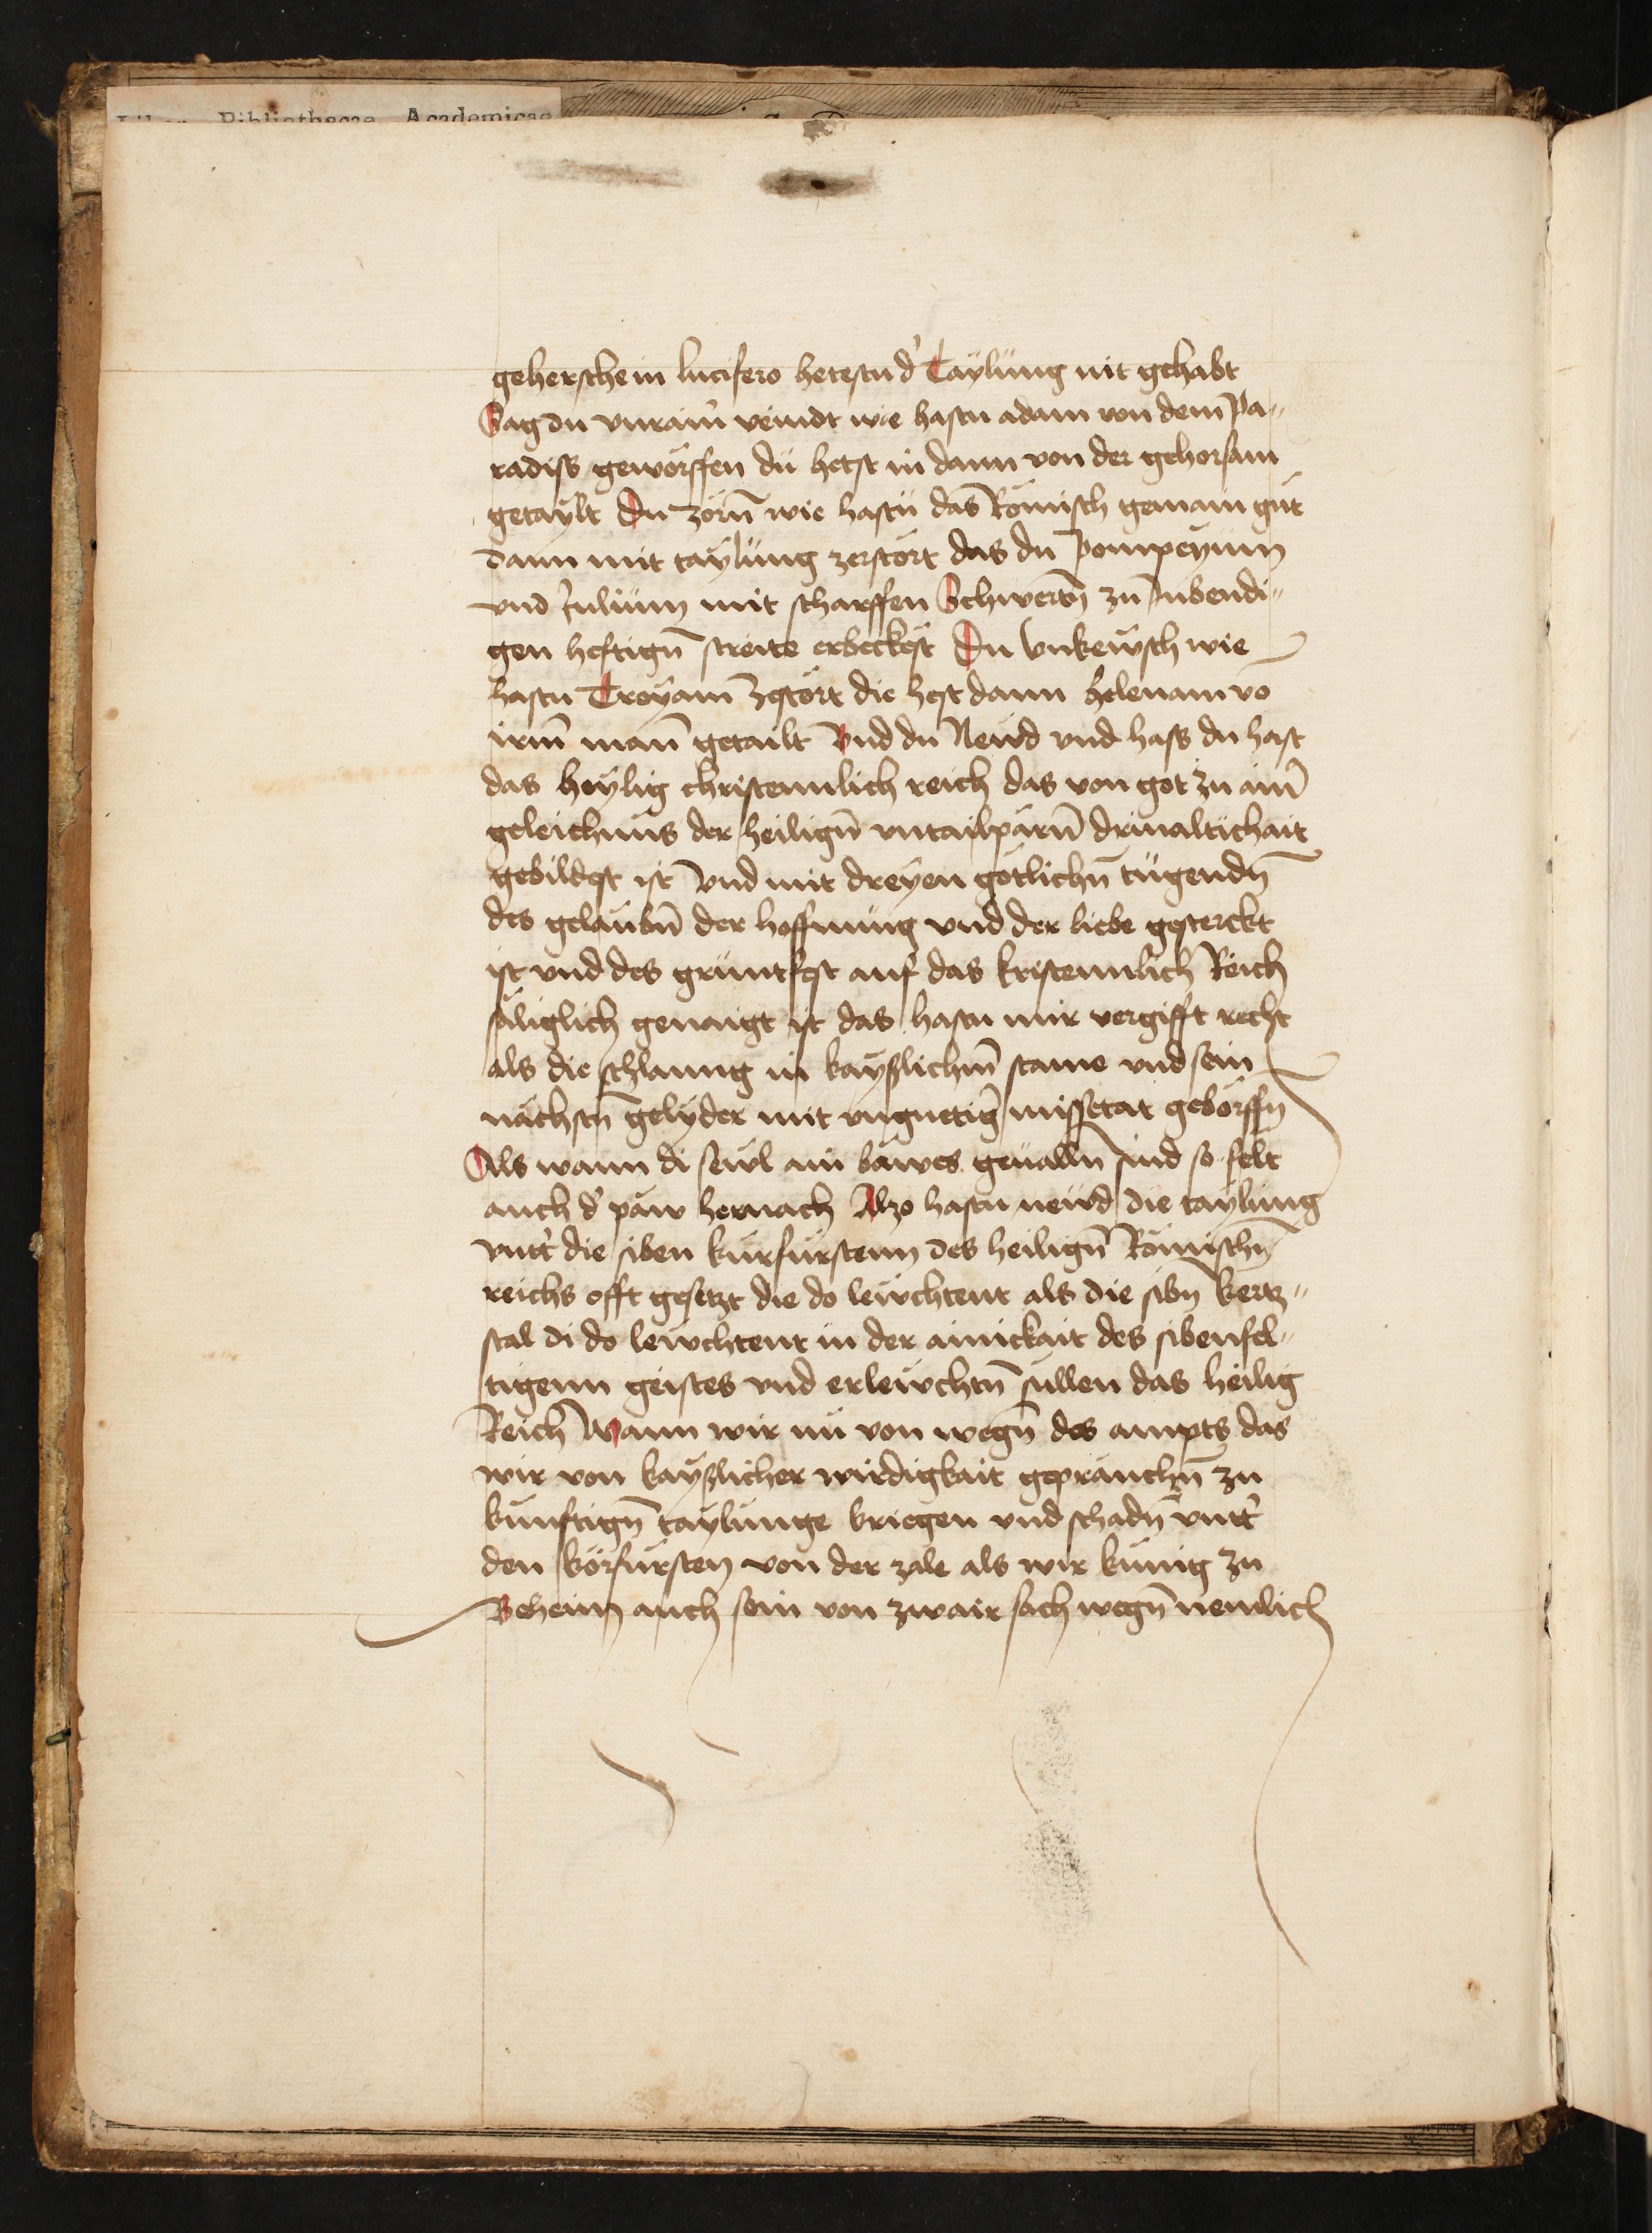 Liber Bibliothecae Academicae
geherschein lucifero hetestu d' Taylüng nit gehabt
Sag du vnrain̄ veindt wie hastu adam von dem pa„
radiss geworffen dü hetst in dann von der gehorsam
getaylt Du zorn̄ wie hastü das Römisch gemain güt
dann mit taylüng zerstört das dü pompeyum
vnd Julium mit scharffen Schwertn̄ zu Inbendi„
gen heftign̄ streite erbeckest Du vnkewsch wie
hastu Troyam zestört die hest dann helenam vo
irm̄ man̄ getailt Vnd du Newd vnd hass du hast
das heylig christennlich reich das von got zu aim̄
geleichnus der heilign̄ vntailparn̄ driualtichait
gebildest ist Vnd mit dreyen götlichn̄ tügendn̄
des gelaubn̄ der hoffnung vnd der liebe gesterckt
ist vnd des grüntfest auf das kristennlich Reich
säliglich genaigt ist das hastu mir vergifft recht
als die schlanng in kayslichm̄ stame vnd sein
nächstn̄ gelyder mit vnguetig' missetat geborffn
Als wann di sewl ain bawes geualln̄ sind so felt
auch d' paw hernach Also hastu newd die taylung
vntt' die siben kürfürstenn des heilign̄ Römischn̄
reichs offt gesetzt die do lewchtent als die sibn kertz„
stal di do lewchtent in der ainickait des sibenfel„
tigenn geistes vnd erlewchtn̄ süllen das heilig
Reich Wann wir nü von wegn̄ des ampts das
wir von kayslicher wirdigkait geprauchn̄ zu
künftign̄ taylunge kriegen vnd schadn̄ vntt'
den körfürsten von der zale als wir künig zu
Beheim auch sein von zwair sach wegn̄ nemlich